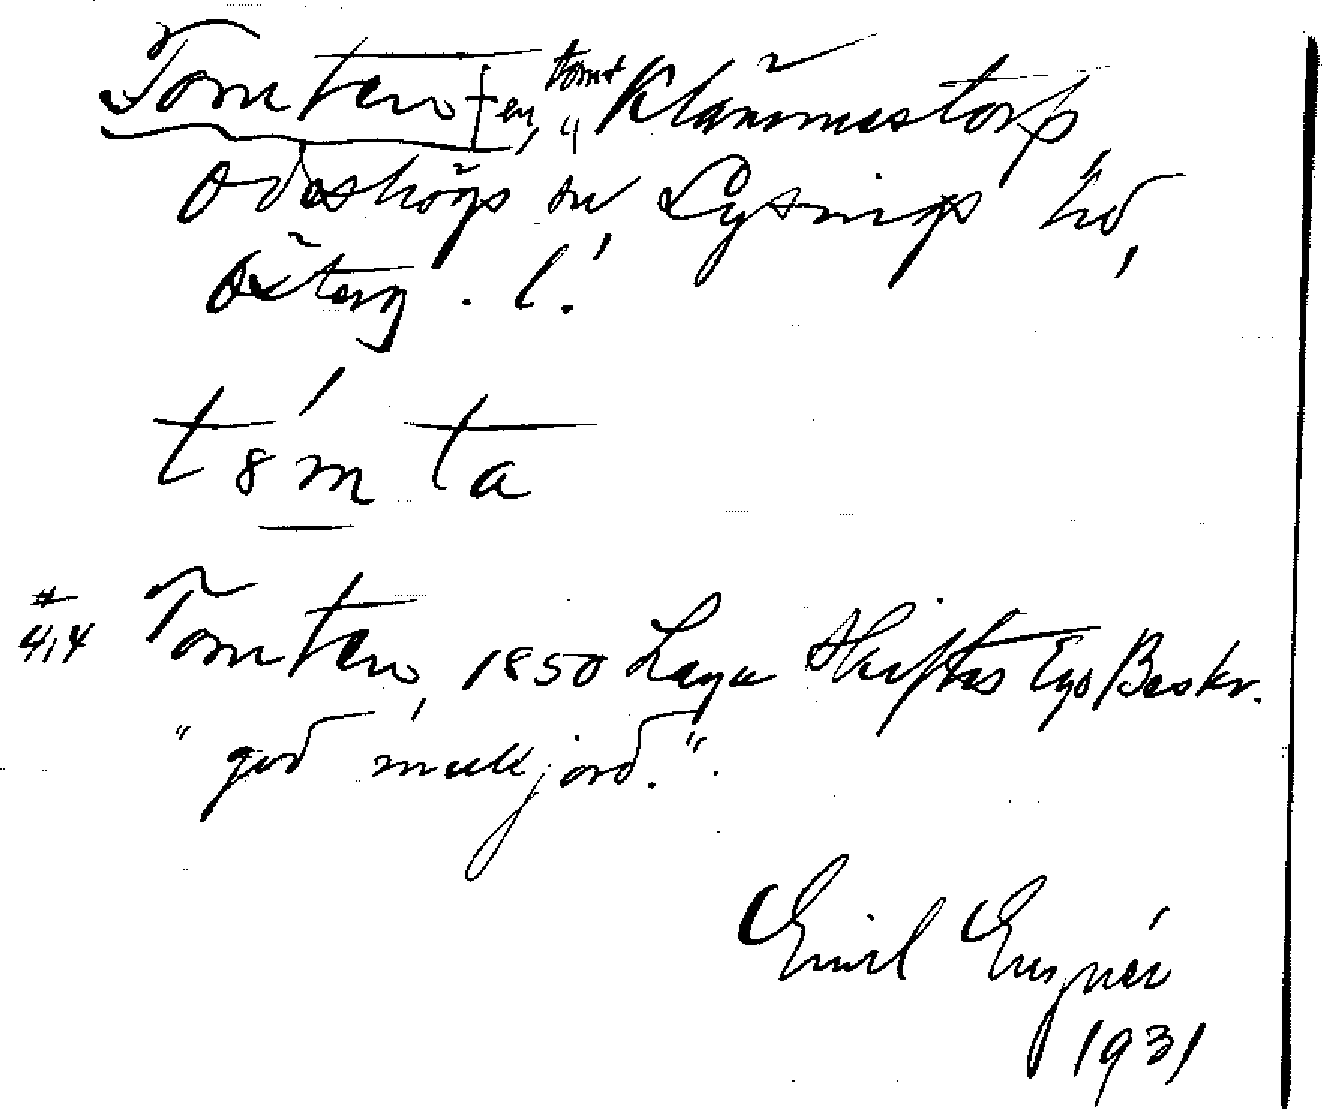 Tomten, en, tomt „ Klämmestorp,
Ödeshögs sn, Lysings hd,
Österg. l.
t8́m ta
# 4,4 Tomten, 1850 Laga Skiftes Ego Beskr.
"god mulljord.".
Emil
1931